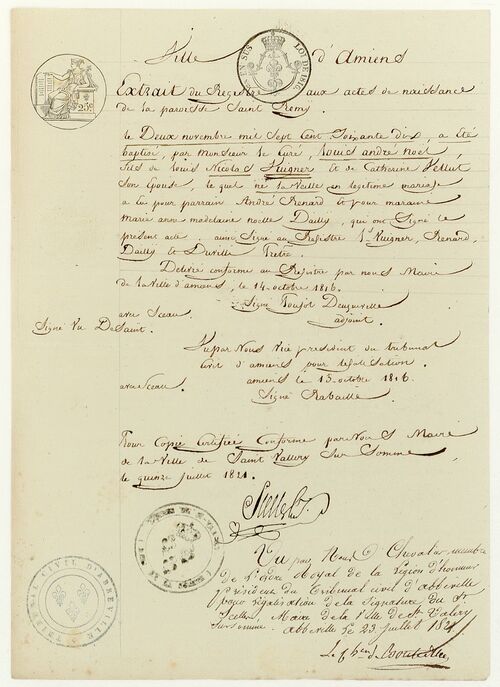 Ville d'Amiens
EN SUS LOI DE 1816
25c
Extrait du Registre aux actes de naissance
de la paroisse Saint Remy
le Deux novembre mil sept Cent Soixante dix, a été
baptisé, par Monsieur le Curé, Louis andré noël
fils de Louis Nicolas Vuigner et de Catherine
Son Epouse, le quel né la Veille en legitime mariage
a eu pour parrain André Renard et pour maraine
marie anne madelaine noelle Dailly, qui ont Signé le
present acte, ainsi Signé au Registre Vuigner, Renard,
Dailly et Duville Pretre.
Delivré conforme au Registre par nous Maire
de la Ville d'amiens, le 14 octobre 1816.
Signé
avec Sceau. adjoint.
Signé Vu
Vu par Nous Vice president du tribunal
civil d'amiens pour legalisation.
avec Sceau. amiens le 15 octobre 1816.
Signé
Pour Copie Certifiée Conforme par Nous Maire
de la Ville de Saint Vallery Sur Somme,
le quinze juillet 1821.
Vu par Nous Chevalier membre
de l'ordre Royal de la Légion d'honneur
président du Tribunal civil d'abbeville
pour légalisation de la Signature du Sr
Maire de la Ville de St Valery
Sur Somme. abbeville le 23 juillet 1821
TRIBUNAL CIVIL D'ABBEVILLE